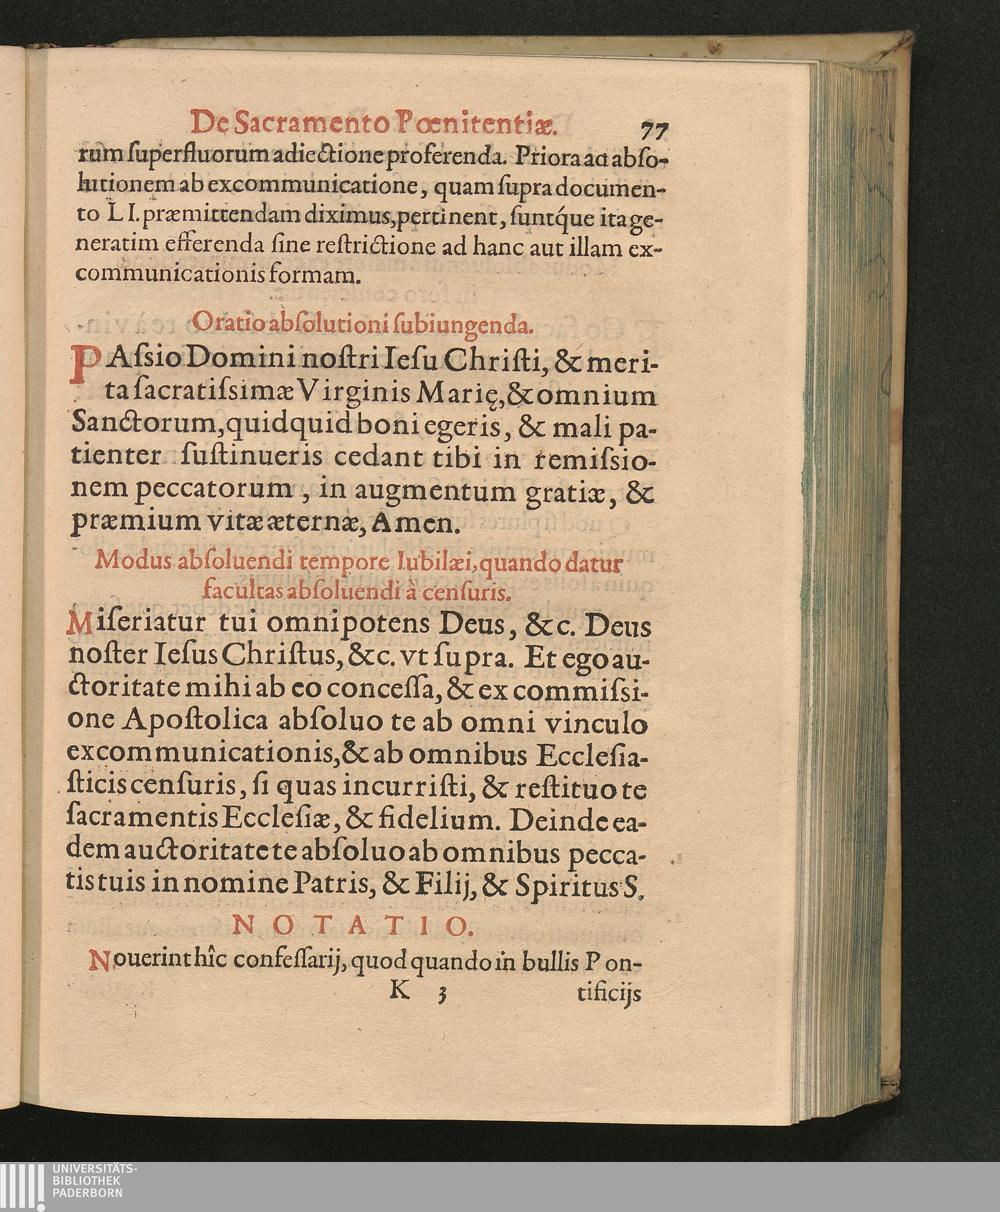 De Sacramento Pœnitentiæ. 77
rum ſuperfluorum adiectione proferenda. Priora ad abſo-
lutionem ab excommunicatione, quam ſupra documen-
to LI. præmittendam diximus, pertinent, ſuntq́ue ita ge-
neratim efferenda ſine reſtrictione ad hanc aut illam ex-
communicationis formam.
Oratio abſolutioni ſubiungenda.
PAſsio Domini noſtri Ieſu Chriſti, & meri-
ta ſacratiſsimæ Virginis Marię, & omnium
Sanctorum, quidquid boni egeris, & mali pa-
tienter ſuſtinueris cedant tibi in remiſsio-
nem peccatorum, in augmentum gratiæ, &
præmium vitæ æternæ, Amen.
Modus abſoluendi tempore Iubilæi, quando datur
facultas abſoluendi à cenſuris.
Miſeriatur tui omnipotens Deus, &c. Deus
noſter Ieſus Chriſtus, &c. vt ſupra. Et ego au-
ctoritate mihi ab eo conceſſa, & ex commiſsi-
one Apoſtolica abſoluo te ab omni vinculo
excommunicationis, & ab omnibus Eccleſia-
ſticis cenſuris, ſi quas incurriſti, & reſtituo te
ſacramentis Eccleſiæ, & fidelium. Deinde ea-
dem auctoritate te abſoluo ab omnibus pecca-
tis tuis in nomine Patris, & Filij, & Spiritus S.
NOTATIO.
Nouerint hîc confeſſarij, quod quando in bullis Pon-
K 3 tificijs
UNIVERSITÄTS-
BIBLIOTHEK
PADERBORN